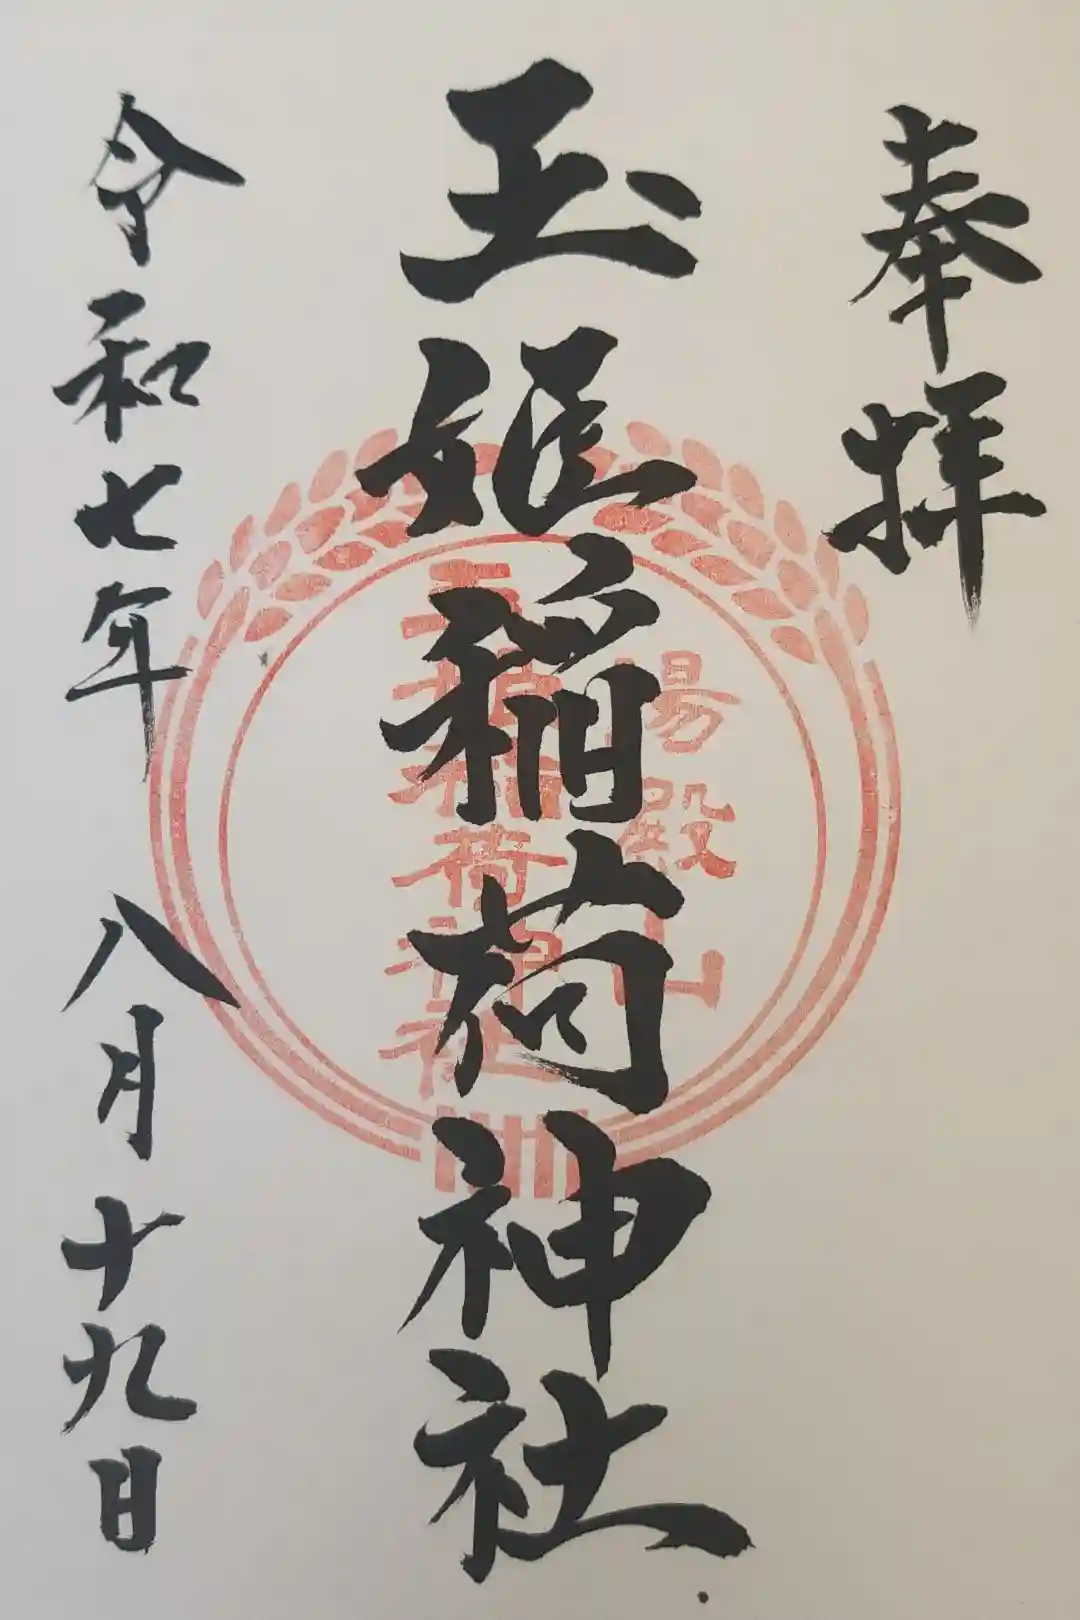 奉拝
御殿山
玉姫稲荷神社
玉姫稲荷神社
令和七年 八月十九日